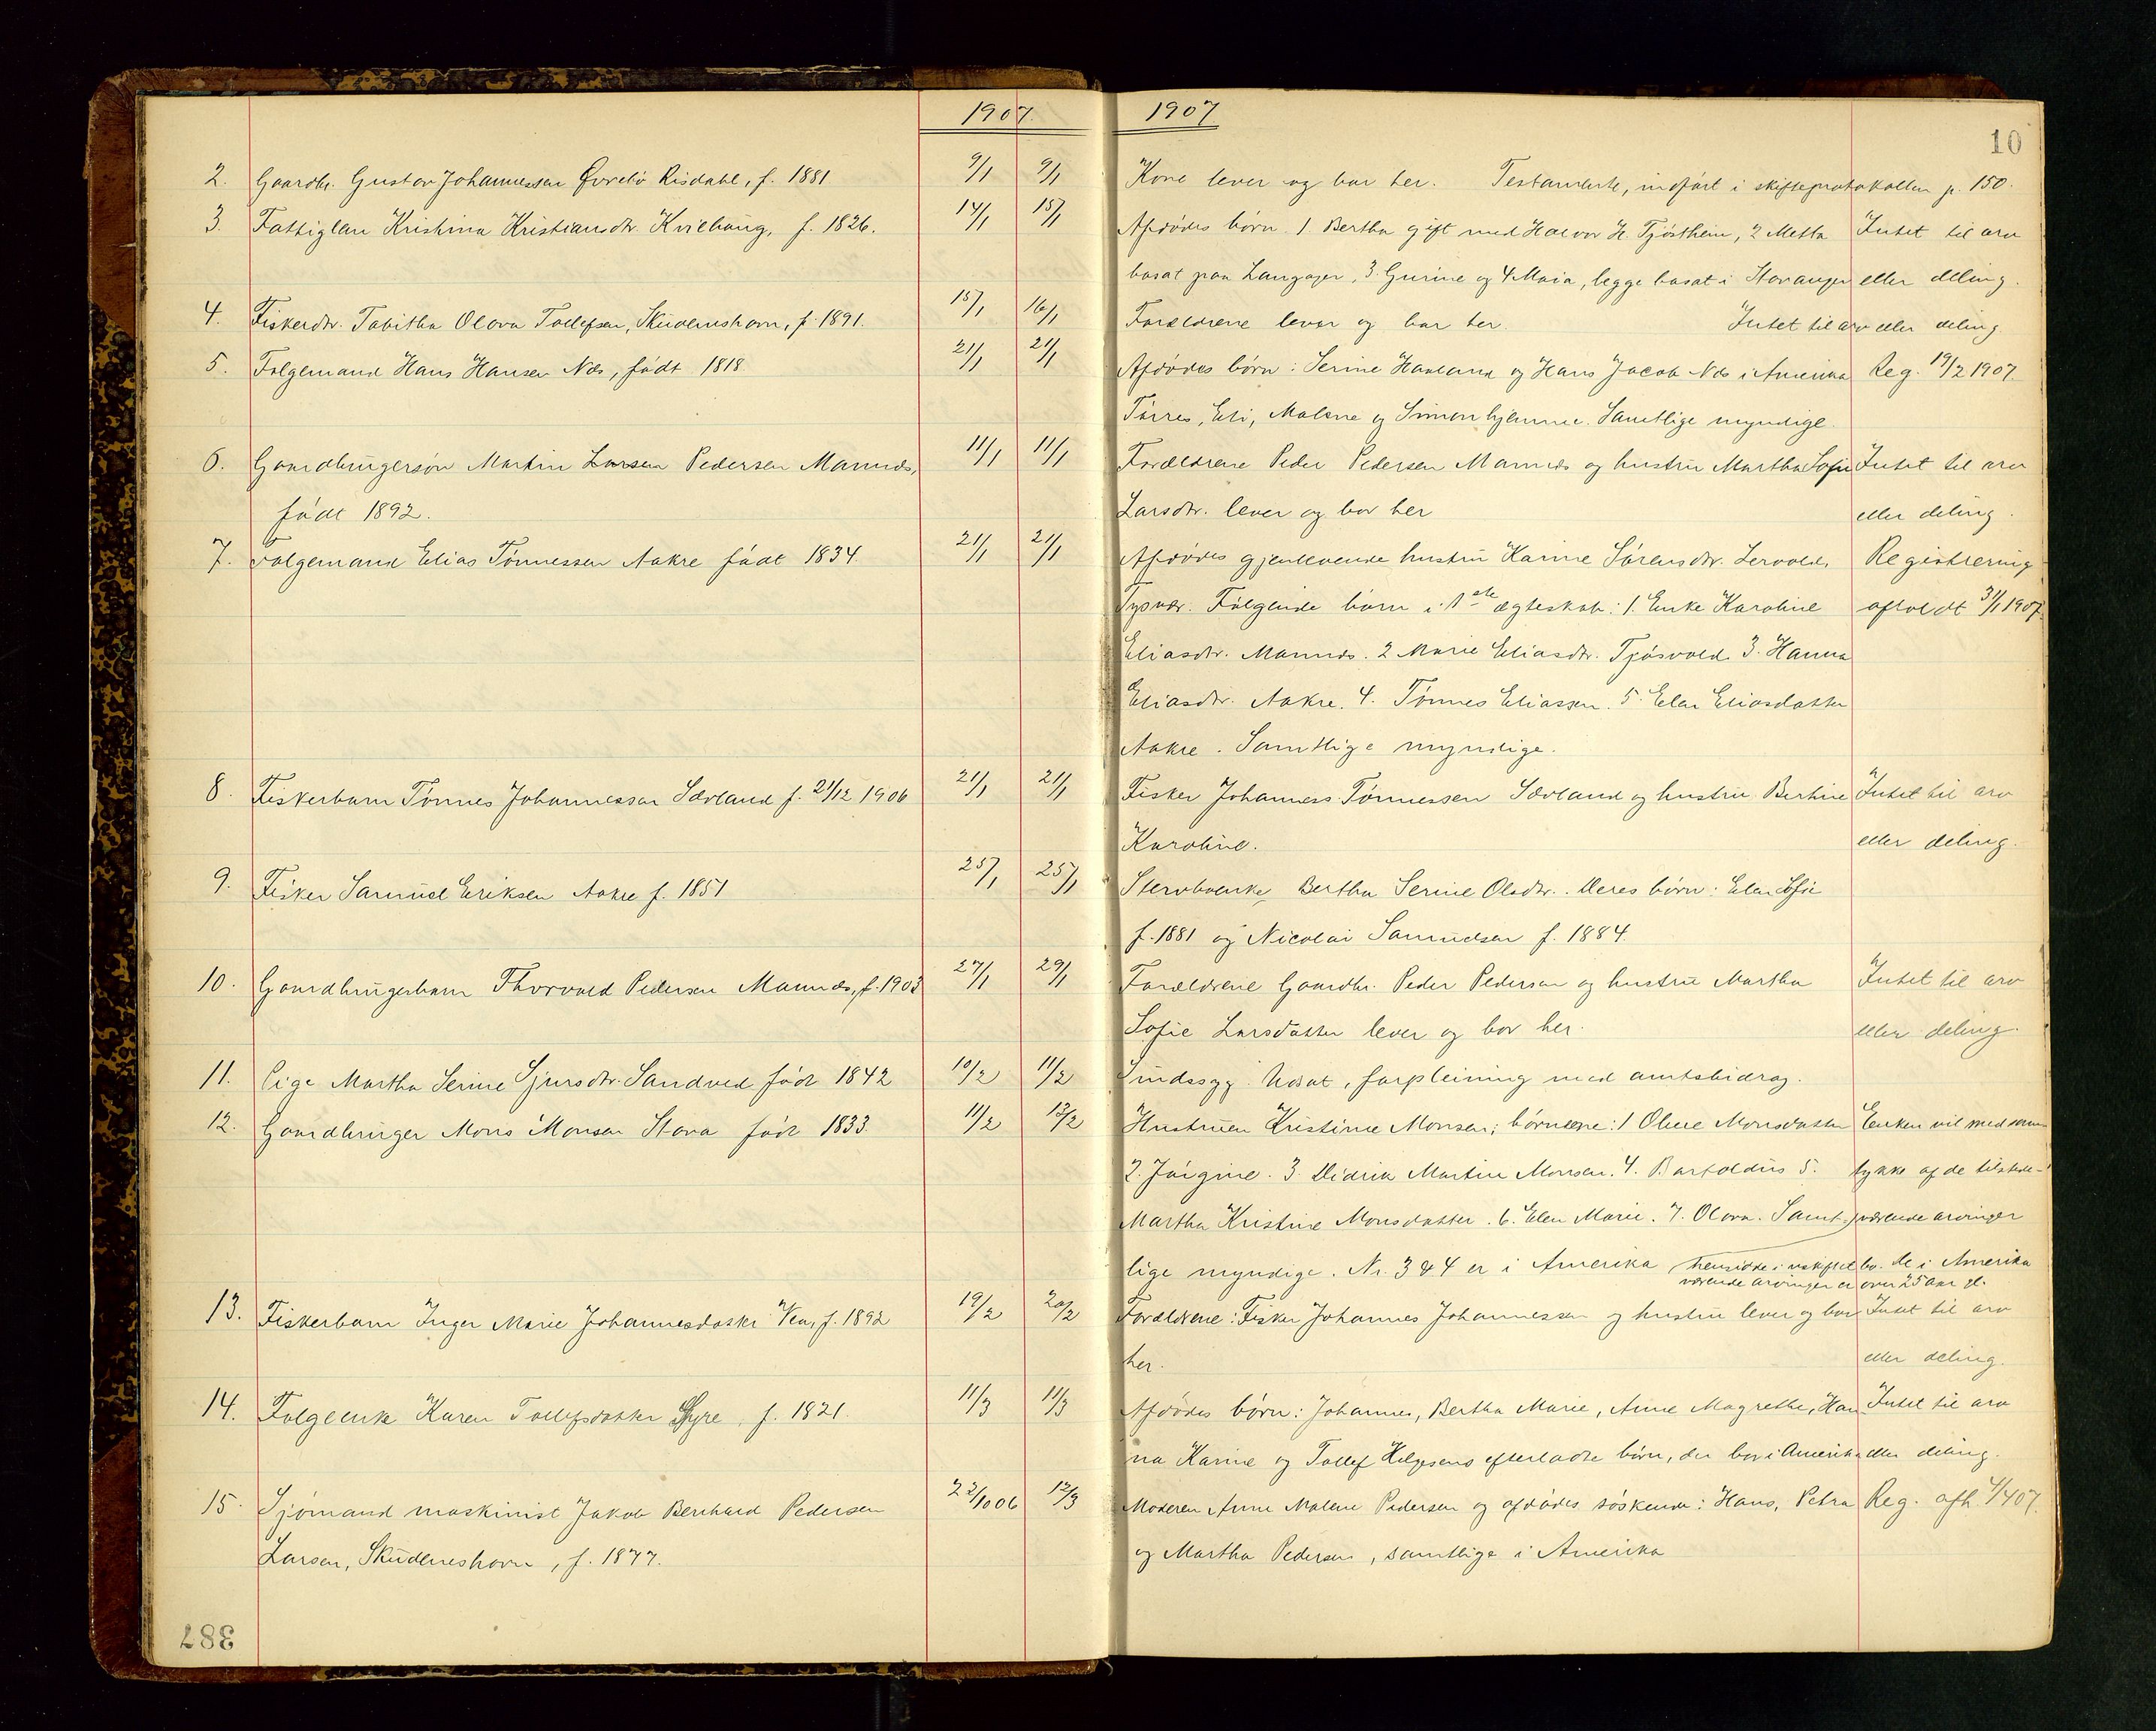 1907
1907
10
2. Gaardbr. Gustav Johannessen Øvrebö Risdahl, f. 1881. 9/1 9/1 Kone lever og bor her. Testamente, indført i skifteprotokollen p. 150.
3. Fattiglem Kristina Kristiansdtr. Kvilhaug, f. 1826. 14/1 15/1 Afdødes börn 1 Bertha gift med Halvor H. Tjöstheim, 2 Metta Intet til arv
bosat paa Langager, 3 Gurine og 4 Maia, begge bosat i Stavanger eller deling.
4. Fiskerdtr. Tabitha Olava Tollefsen, Skudeneshavn, f. 1891. 15/1 16/1 Forældrene lever og bor her. Intet til arv eller deling.
5. Folgemand Hans Hansen Næs, født 1818. 21/1 21/1 Afdødes börn: Serine Havland og Hans Jacob Næs i Amerika Reg. 19/2 1907.
Tórres, Eli, Malene og Simon hjemme. Samtlige myndige.
6. Gaardbrugersön Martin Larsen Pedersen Mannæs, 11/1 11/1 Forældrene Peder Pedersen Mannæs og hustru Martha Sofie Intet til arv
født 1892. Larsdtr. lever og bor her eller deling.
7. Folgemand Elias Tönnessen Aakre født 1834. 21/1 21/1 Afdødes gjenlevende hustru Karine Sörensdtr. Registrering
Tysvær. Fölgende börn i 1ste ægteskab: 1. Enke Karoline afholdt 31/1 1907.
Eliasdtr. Mannæs. 2 Marie Eliasdtr. Tjösvold. 3. Hanna
Eliasdtr. Aakre. 4. Tönnes Eliassen. 5. Elen Eliasdatter
Aakre. Samtlige myndige.
8. Fiskerbarn Tönnes Johannessen Sævland f. 21/12 1906 21/1 21/1 Fisker Johannes Tönnessen Sævland og hustru Bertine Intet til arv
Karoline. eller deling.
9. Fisker Samuel Eriksen Aakre f. 1851 25/1 25/1 Stervboenke, Bertha Serine Olsdtr. Deres börn: Elen Sofie
f. 1881 og Nicolai Samuelsen f. 1884.
10. Gaardbrugerbarn Thorvald Pedersen Mannæs, f. 1903 27/1 29/1 Forældrene Gaardbr. Peder Pedersen og hustru Martha Intet til arv
Sofie Larsdatter lever og bor her. eller deling.
11. Pige Martha Serine Sjursdtr. Sandved född 1842 10/2 11/2 Sindssyg. Udsat, forpleining med amtsbidrag.
12. Gaardbruger Mons Monsen Stava född 1833. 11/2 13/2 Hustruen Kristine Monsen; börnene: 1 Oline Monsdatter Enken vil med sam-
2. Jörgine. 3. Didrik Martin Monsen. 4. Bartoldus 5. tykke af de tilstede-
Martha Kristine Monsdatter. 6. Elen Marie. 7. Olava. Samt- værende arvinger
lige myndige. Nr. 3 & 4 er i Amerika hensidde i uskiftet bo. De i Amerika
værende arvinger er over 25 aar gl.
13. Fiskerbarn Inger Marie Johannesdatter Vea, f. 1892 19/2 20/2 Forældrene: Fisker Johannes Johannessen og hustru lever og bor Intet til arv
her. eller deling.
14. Folgeenke Karen Tollefsdatter Syre, f. 1821. 11/3 11/3 Afdödes börn: Johannes, Bertha Marie, Anne Magrethe, Han- Intet til arv
na Karine og Tollef Helgesens efterladte börn, der bor i Amerika eller deling.
15. Sjömand maskinist Jakob Bernhard Pedersen 22/10 06 12/3 Moderen Anne Malene Pedersen og afdödes söskende: Hans, Petra Reg. afh. 4/4 07.
Larsen, Skudeneshavn, f. 1877. og Martha Pedersen, samtlige i Amerika
387